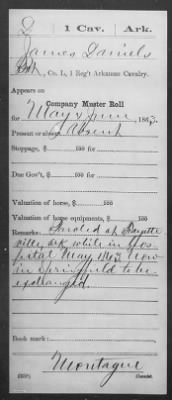 D 1 Cav. Ark.
James Daniels
Pvt, Co. L, 1 Reg't Arkansas Cavalry.
Appears on
Company Muster Roll
for May & June, 1863.
Present or absent Absent
Stoppage, $ 100 for
Due Gov't, $ 100 for
Valuation of horse, $ 100
Valuation of horse equipments, $ 100
Remarks: Paroled at Fayette
ville, Ark while in hos
pital May 1863 Now
in Springfield to be
exchanged.
Book mark:
Montague
(358) Copyist.